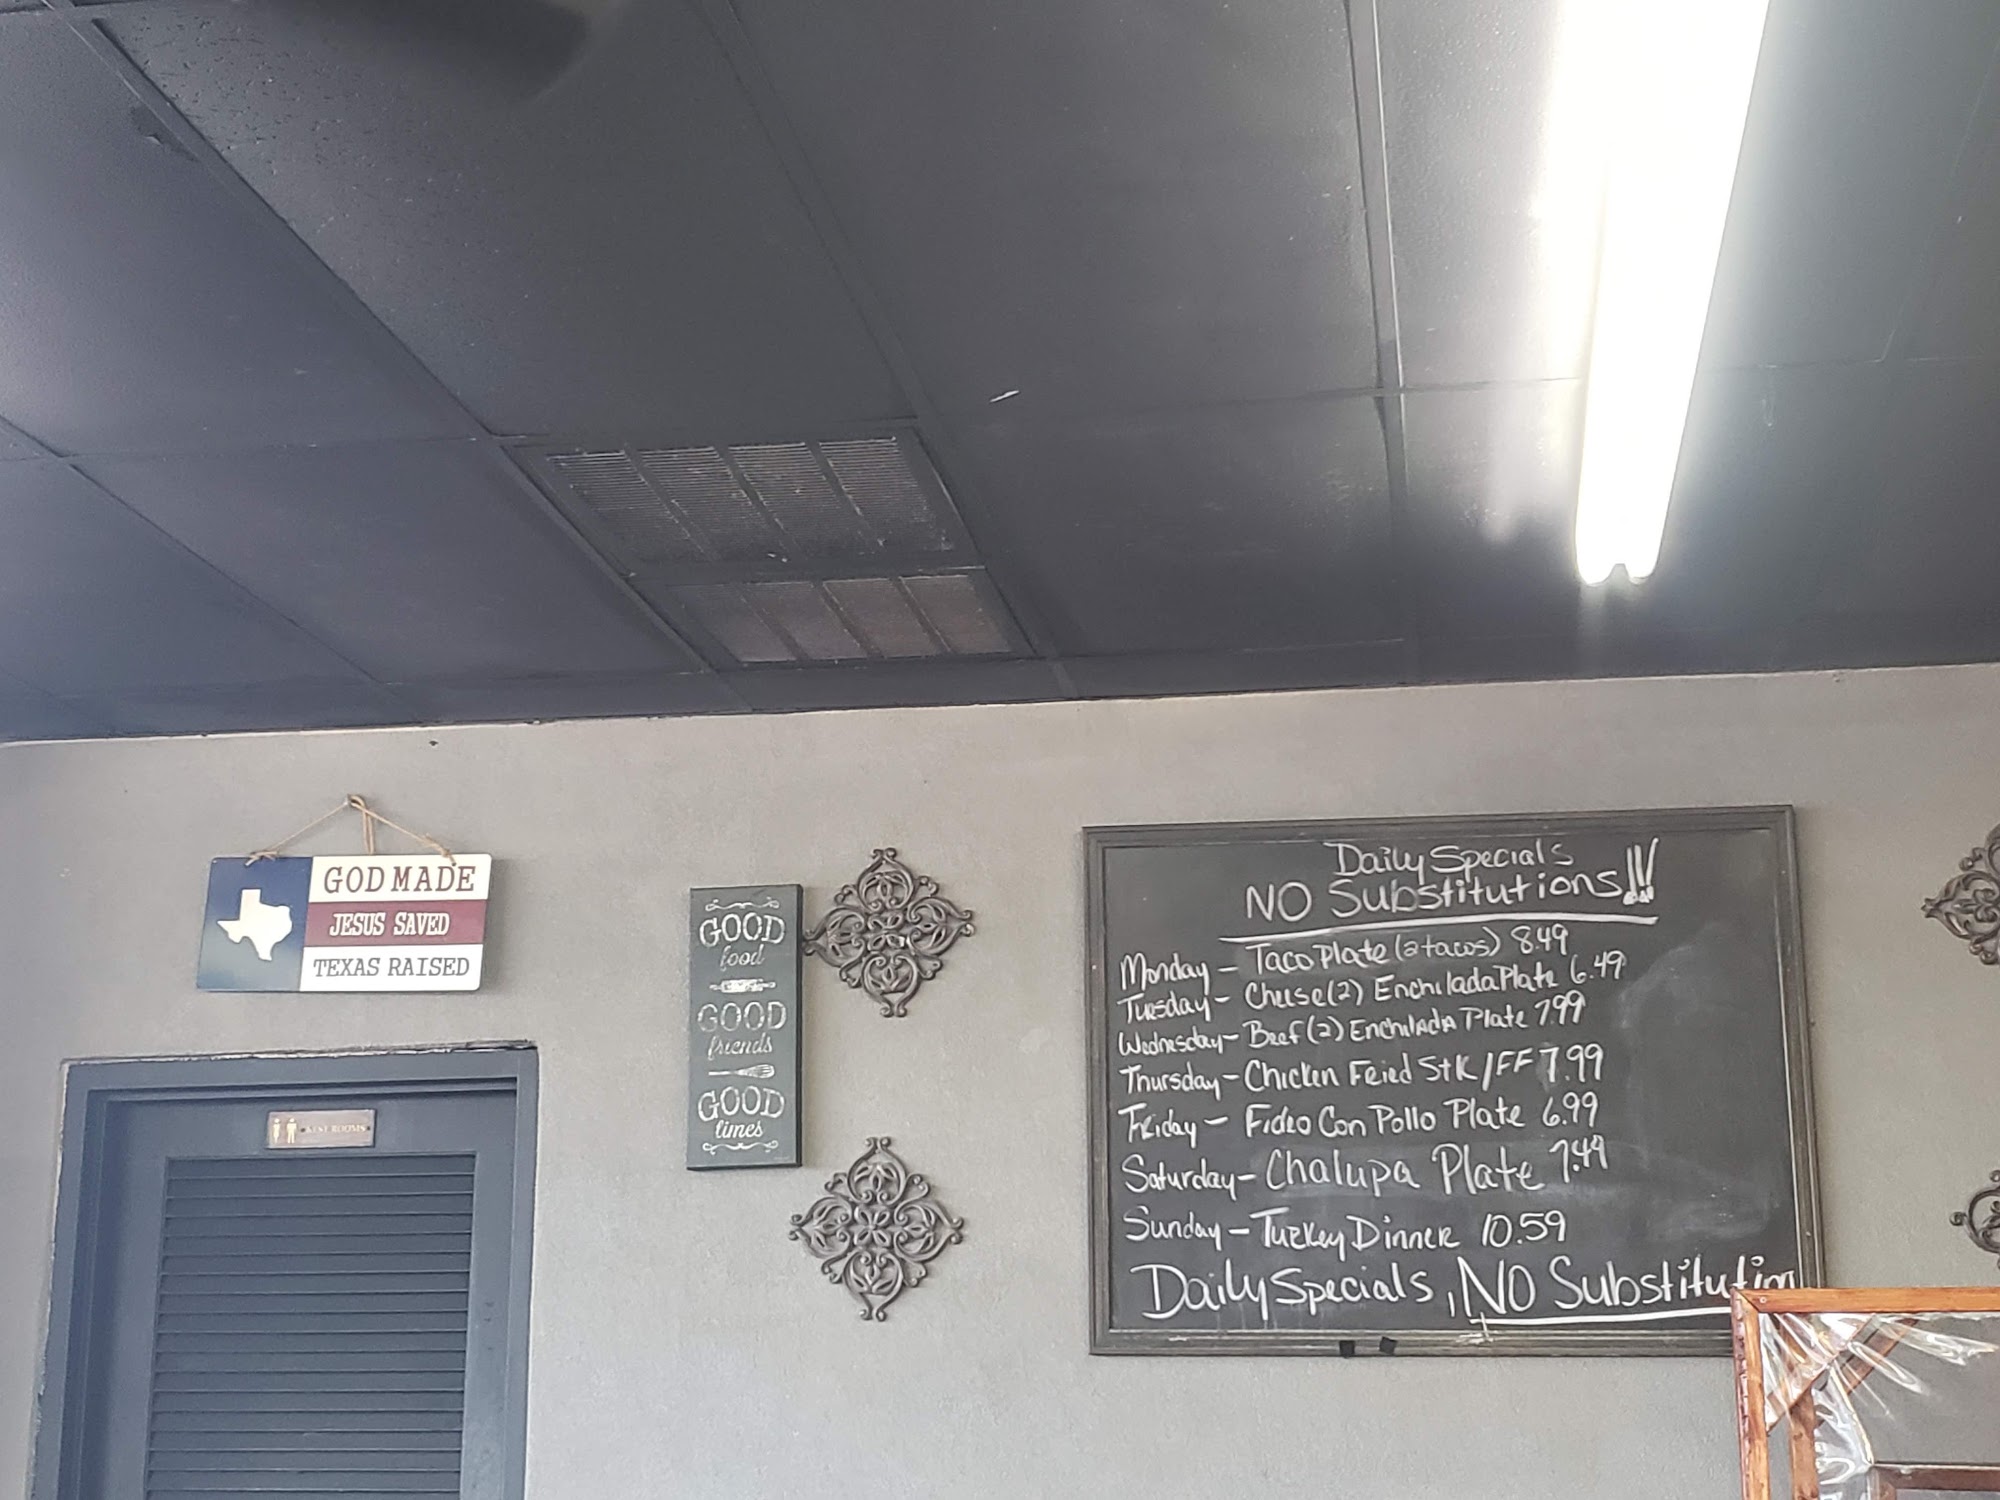 GOD MADE
JESUS SAVED
TEXAS RAISED
REST ROOMS
GOOD
food
GOOD
friends
GOOD
times
Daily Specials
NO Substitutions!!!
Monday - Taco Plate (2 tacos) 8.49
Tuesday - Cheese (2) Enchilada Plate 6.49
Wednesday - Beef (2) Enchilada Plate 7.99
Thursday - Chicken Fried Stk / FF 7.99
Friday - Fideo Con Pollo Plate 6.99
Saturday - Chalupa Plate 7.49
Sunday - Turkey Dinner 10.59
Daily Specials, NO Substitution